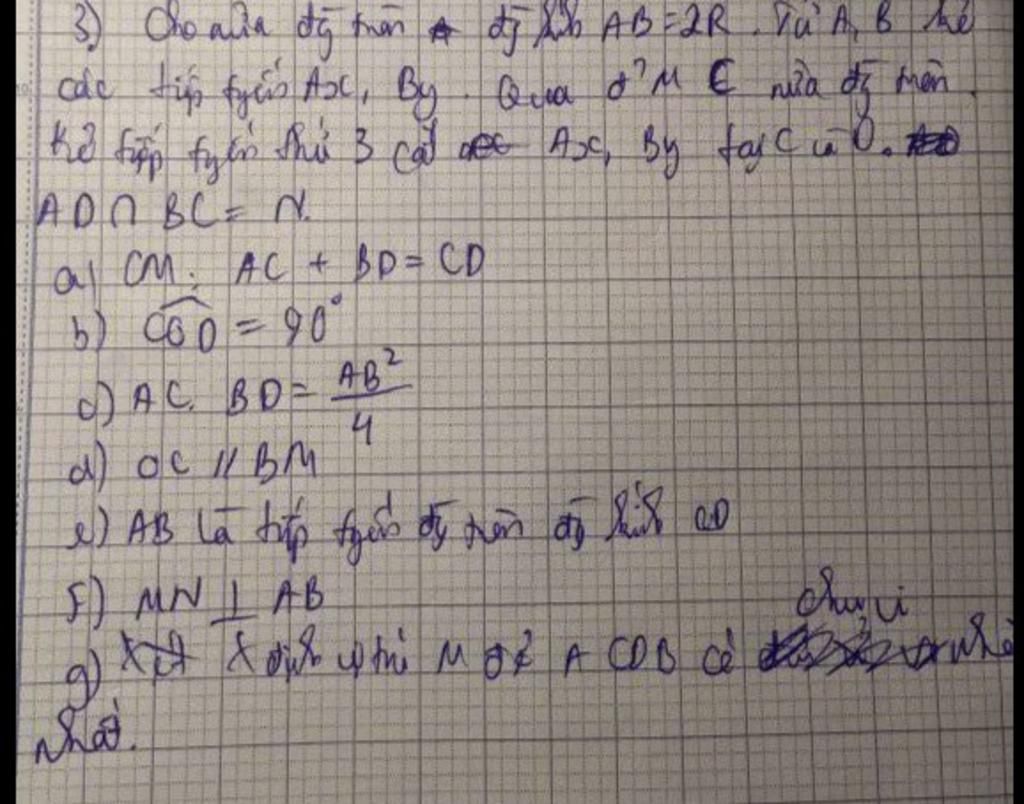 3) Cho nửa đg tròn đg kính AB = 2R. Từ A, B kẻ
các tiếp tyến Ax, By. Qua đ² M ∈ nửa đg tròn
Kẻ tiếp tyến thứ 3 cắt Ax, By tại C và D.
AD ∩ BC = N.
a) CM: AC + BD = CD
b) \widehat{COD} = 90°
c) AC. BD = \frac{AB^2}{4}
d) OC // BM
e) AB là tiếp tyến đg tròn đg kính CD
f) MN ⊥ AB
chu vi
g) X định vị trí M để ACDB có nhỏ
nhất.